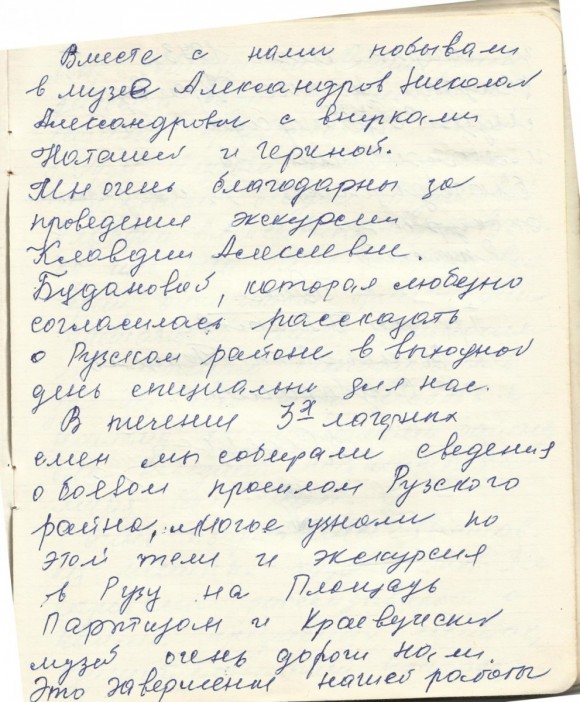 Вместе с нами побывали
в музее Александров Николай
Александрович с внучками
Наташей и
Мы очень благодарны за
проведение экскурсии
Клавдии Алексеевне
Будановой, которая любезно
согласилась рассказать
о Рузском районе в выходной
день специально для нас.
В течении 3х лагерных
смен мы собирали сведения
о боевом прошлом Рузского
района, многое узнали по
этой теме и экскурсия
в Рузу на Площадь
Партизан и Краеведческий
музей очень дороги нам.
Это завершение нашей работы